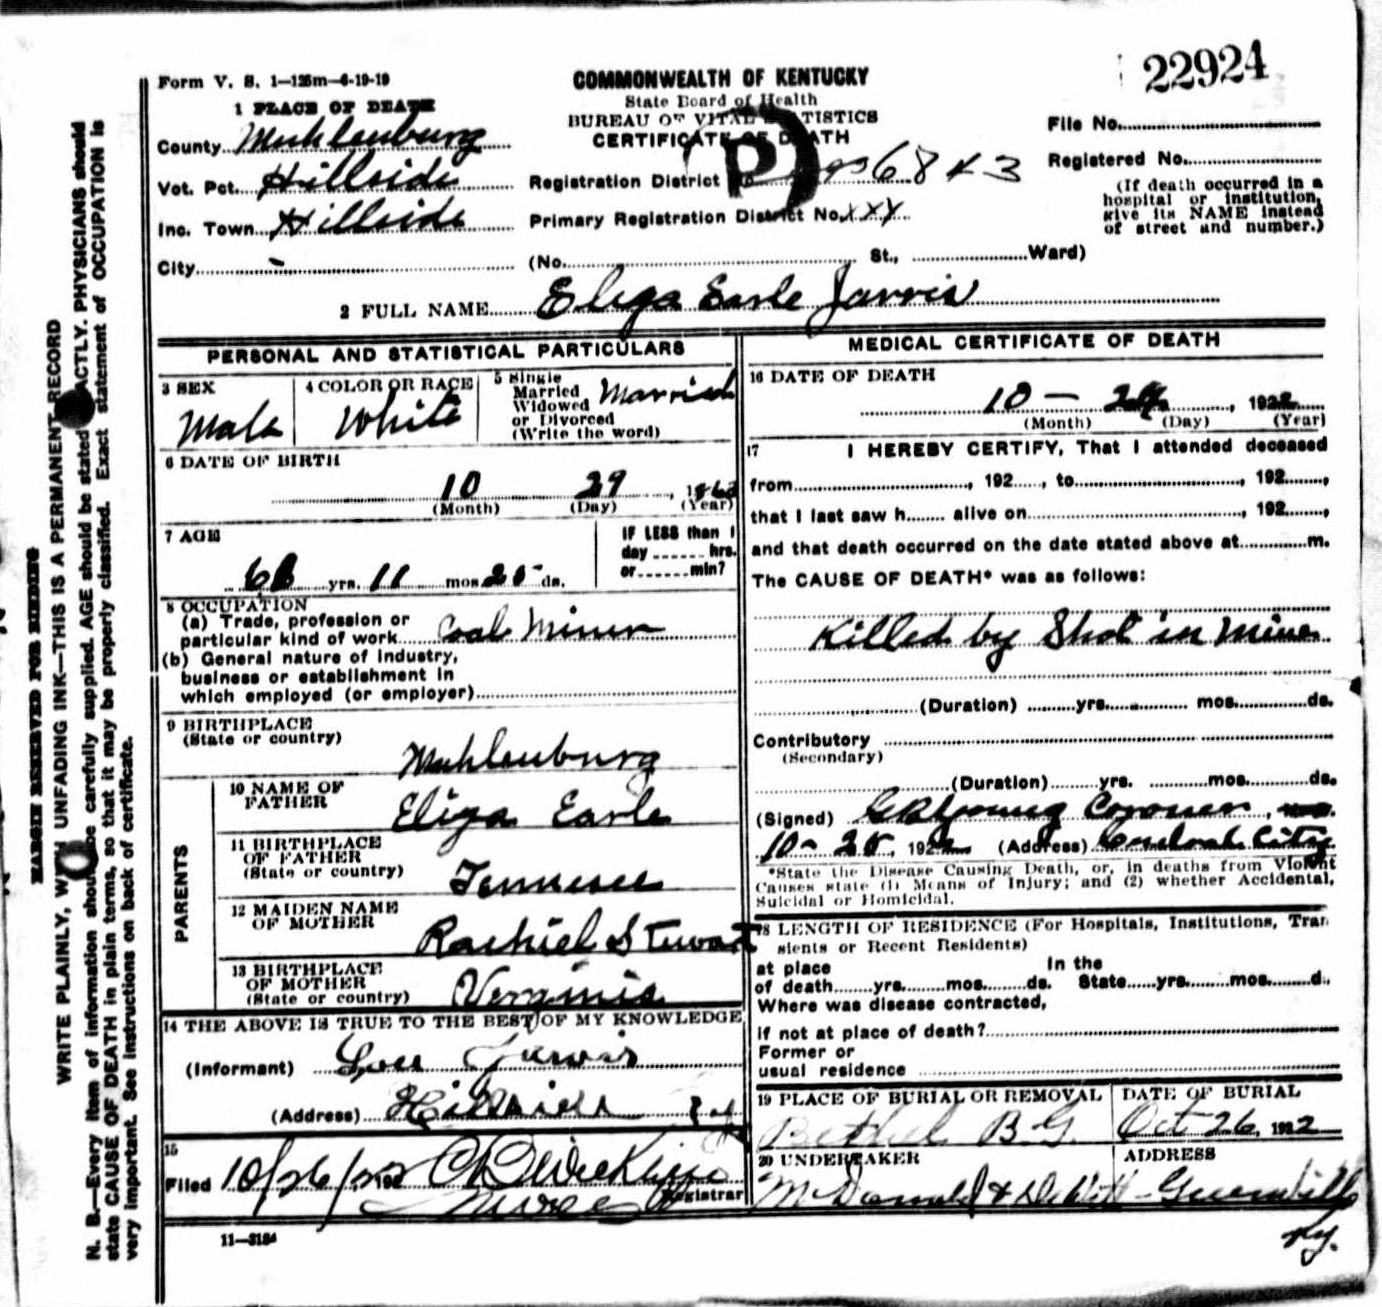 22924
Form V. S. 1-125m-6-19-19
COMMONWEALTH OF KENTUCKY
State Board of Health
BUREAU OF VITAL STATISTICS
CERTIFICATE OF DEATH
1 PLACE OF DEATH
County Muhlenburg
Vot. Pct. Hillside
Inc. Town Hillside
City -
Registration District No. 6843
Primary Registration District No. XXY
(No. St., Ward)
File No.
Registered No.
(If death occurred in a
hospital or institution,
give its NAME instead
of street and number.)
2 FULL NAME Eliga Earle Jarvis
PERSONAL AND STATISTICAL PARTICULARS
3 SEX
Male
4 COLOR OR RACE
White
5 Single
Married
Widowed
or Divorced
(Write the word)
Married
6 DATE OF BIRTH
10 29
(Month) (Day) (Year)
7 AGE
yrs. 11 mos. 25 ds.
IF LESS than 1
day hrs.
or min?
8 OCCUPATION
(a) Trade, profession or
particular kind of work Coal Miner
(b) General nature of Industry,
business or establishment in
which employed (or employer)
9 BIRTHPLACE
(State or country)
Muhlenburg
PARENTS
10 NAME OF
FATHER
Eliga Earle
11 BIRTHPLACE
OF FATHER
(State or country)
Tennessee
12 MAIDEN NAME
OF MOTHER
Rachiel Stewart
13 BIRTHPLACE
OF MOTHER
(State or country)
Verginia
14 THE ABOVE IS TRUE TO THE BEST OF MY KNOWLEDGE
(Informant) Lou Jarvis
(Address) Hillside Ky
15
Filed 10/26/1922
Registrar
11-3184
MEDICAL CERTIFICATE OF DEATH
16 DATE OF DEATH
10 - 24, 1922
(Month) (Day) (Year)
17 I HEREBY CERTIFY, That I attended deceased
from , 192 , to , 192 ,
that I last saw h alive on , 192 ,
and that death occurred on the date stated above at m.
The CAUSE OF DEATH* was as follows:
Killed by Shot in Mine
(Duration) yrs. mos. ds.
Contributory
(Secondary)
(Duration) yrs. mos. ds.
(Signed) Young Coroner,
10-25, 1922 (Address) City
*State the Disease Causing Death, or, in deaths from Violent
Causes state (1) Means of Injury; and (2) whether Accidental,
Suicidal or Homicidal.
18 LENGTH OF RESIDENCE (For Hospitals, Institutions, Tran
sients or Recent Residents)
at place In the
of death yrs. mos. ds. State yrs. mos. d
Where was disease contracted,
If not at place of death?
Former or
usual residence
19 PLACE OF BURIAL OR REMOVAL
Bethel B.G.
DATE OF BURIAL
Oct 26, 1922
20 UNDERTAKER
McDonald & DeWitt
ADDRESS
Greenville
Ky.
MARGIN RESERVED FOR BINDING
WRITE PLAINLY, WITH UNFADING INK—THIS IS A PERMANENT RECORD
N. B.—Every item of information should be carefully supplied. AGE should be stated EXACTLY. PHYSICIANS should
state CAUSE OF DEATH in plain terms, so that it may be properly classified. Exact statement of OCCUPATION is
very important. See instructions on back of certificate.